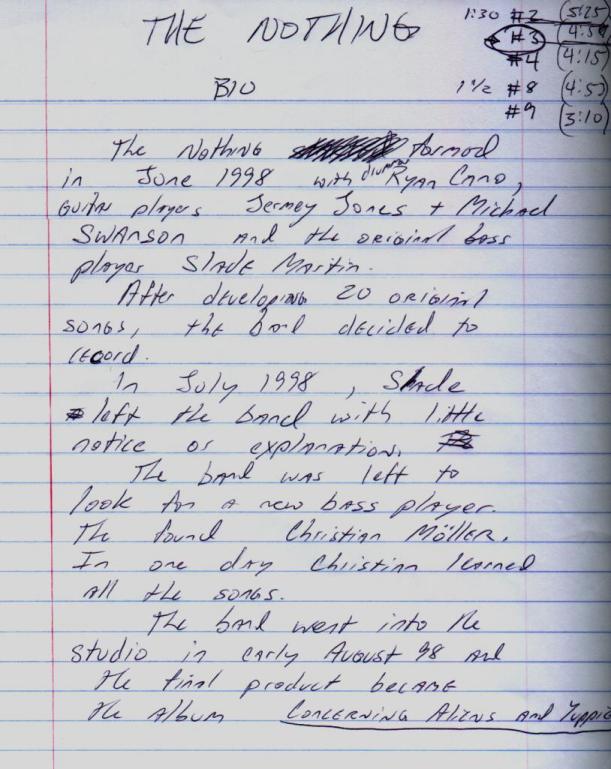 THE NOTHING
1:30 #2 (5:25)
#3 (4:5
#4 (4:15)
BIO
1 1/2 #8 (4:53
#9 (3:10)
The Nothing formed
in June 1998 with drummer Ryan Cano,
GUITAR players Jermey Jones + Michael
SWANSON and the original bass
player Slade Martin.
After developing 20 original
songs, the band decided to
record.
In July 1998 , Slade
left the band with little
notice or explanation.
The band was left to
look for a new bass player.
The found Christian Möller.
In one day Christian learned
all the songs.
The band went into the
studio in early August 98 and
the final product became
the album CONCERNING ALIENS and Yuppie